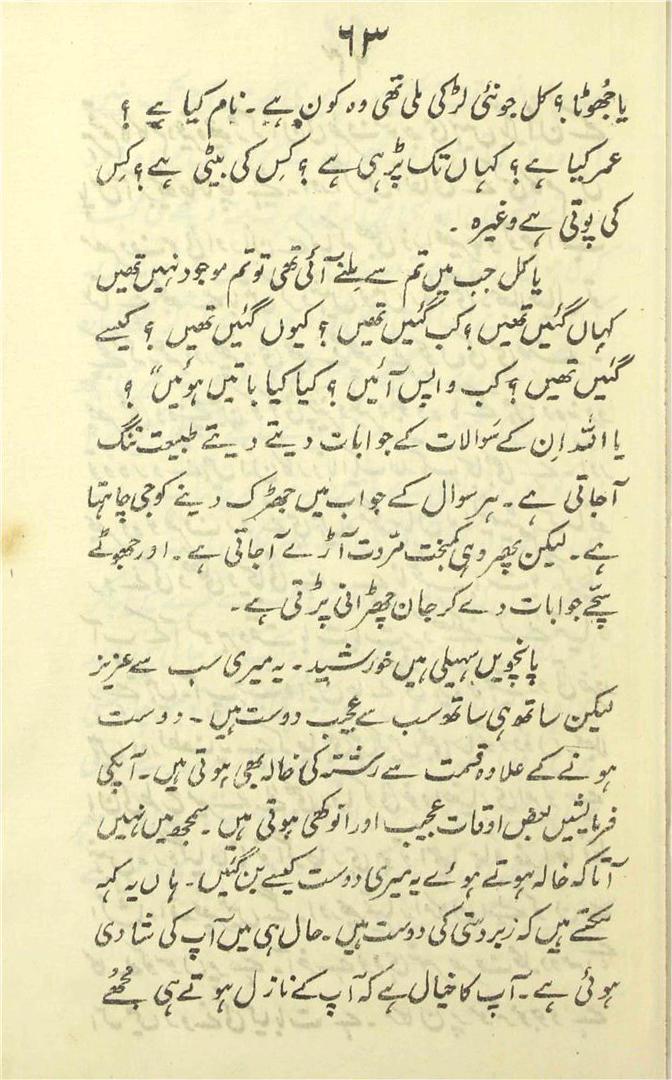 ۶۳
یا جھوٹا؟ کل جو نئی لڑکی ملی تھی وہ کون ہے۔ نام کیا ہے ؟
عمر کیا ہے؟ کہاں تک پڑہی ہے ؟ کِس کی بیٹی ہے؟ کِس
کی پوتی ہے وغیرہ ۔
یا کل جب میں تم سے مِلنے آئی تھی تو تم موجود نہیں تھیں
کہاں گئیں تھیں؟ کب گئیں تھیں ؟ کیوں گئیں تھیں ؟ کیسے
گئیں تھیں؟ کب واپس آئیں ؟ کیا کیا باتیں ہوئیں“ ؟
یا اللّٰہ اِن کے سَوالات کے جوابات دیتے دیتے طبیعت تنگ
آجاتی ہے۔ ہر سوال کے جواب میں جھڑک دینے کو جی چاہتا
ہے۔ لیکن پھر وہی کمبخت مرّدت آڑے آجاتی ہے۔ اور جھوٹے
سچّے جوابات دے کر جان چھڑانی پڑتی ہے۔
پانچویں سہیلی ہیں خورشید۔ یہ میری سب سے عزیز
لیکن ساتھ ہی ساتھ سب سے عجیب دوست ہیں۔ دوست
ہونے کے علاوہ قسمت سے رشتہ کی خالہ بھی ہوتی ہیں۔ آپکی
فرمایشیں بعض اوقات عجیب اور انوکھی ہوتی ہیں۔ سمجھ میں نہیں
آتا کہ خالہ ہوتے ہوے یہ میری دوست کیسے بن گئیں۔ ہاں یہ کہہ
سکتے ہیں کہ زبردستی کی دوست ہیں۔ حال ہی میں آپ کی شادی
ہوئی ہے۔ آپ کا خیال ہے کہ آپ کے نازل ہوتے ہی مُجھے